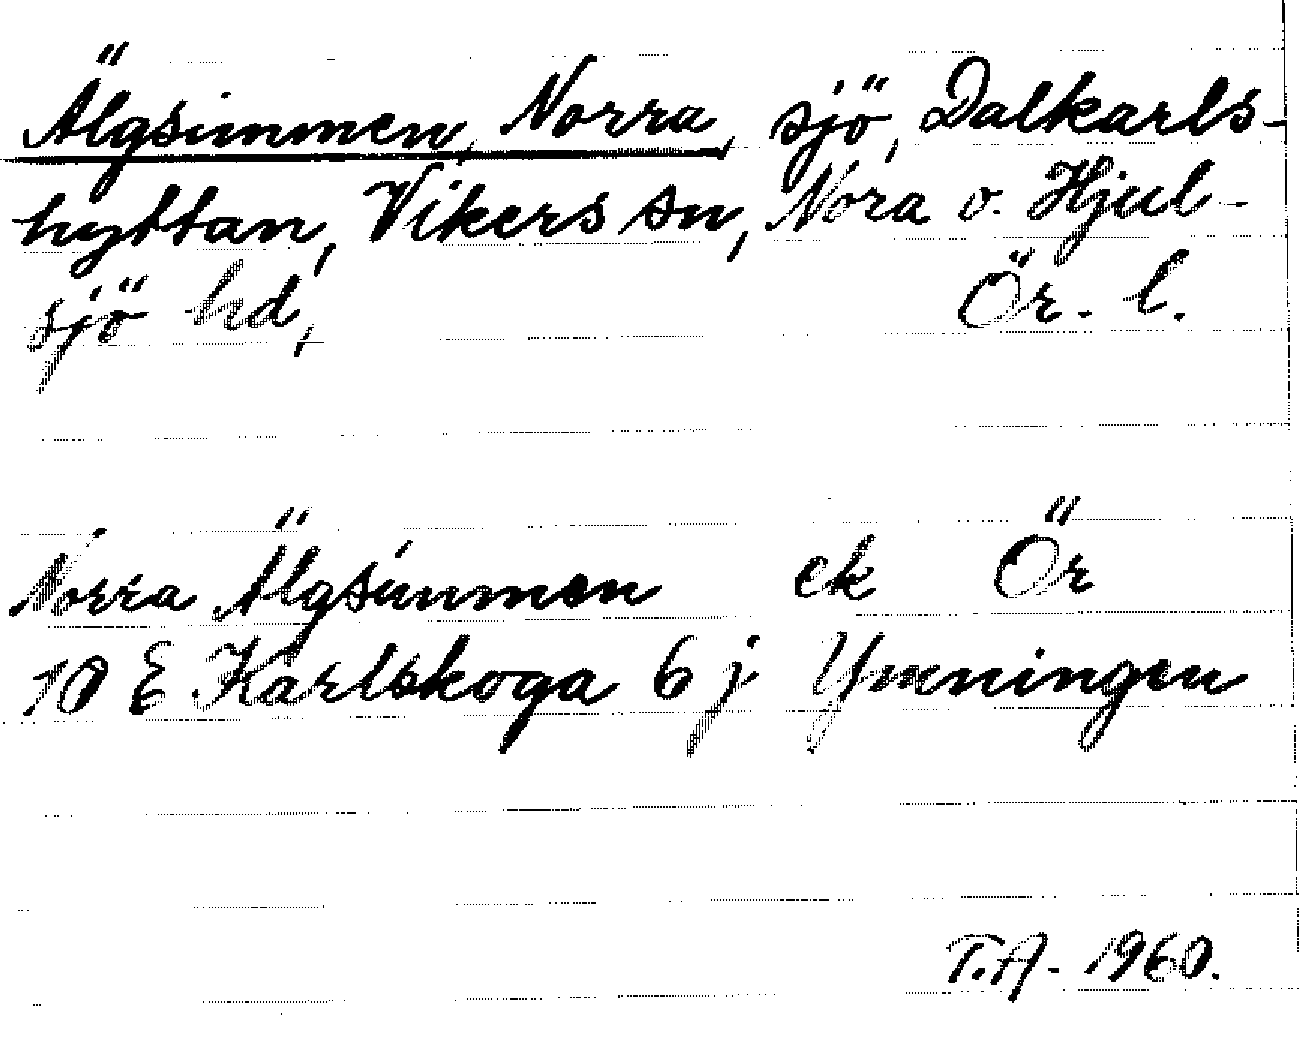 Älgsimmen, Norra, sjö, Dalkarls-
hyttan, Vikers sn, Nora o. Hjul-
sjö hd,                    Ör. l.
Norra Älgsimmen ek Ör
10 E Karlskoga 6 j Ymningen
T.A. 1960.